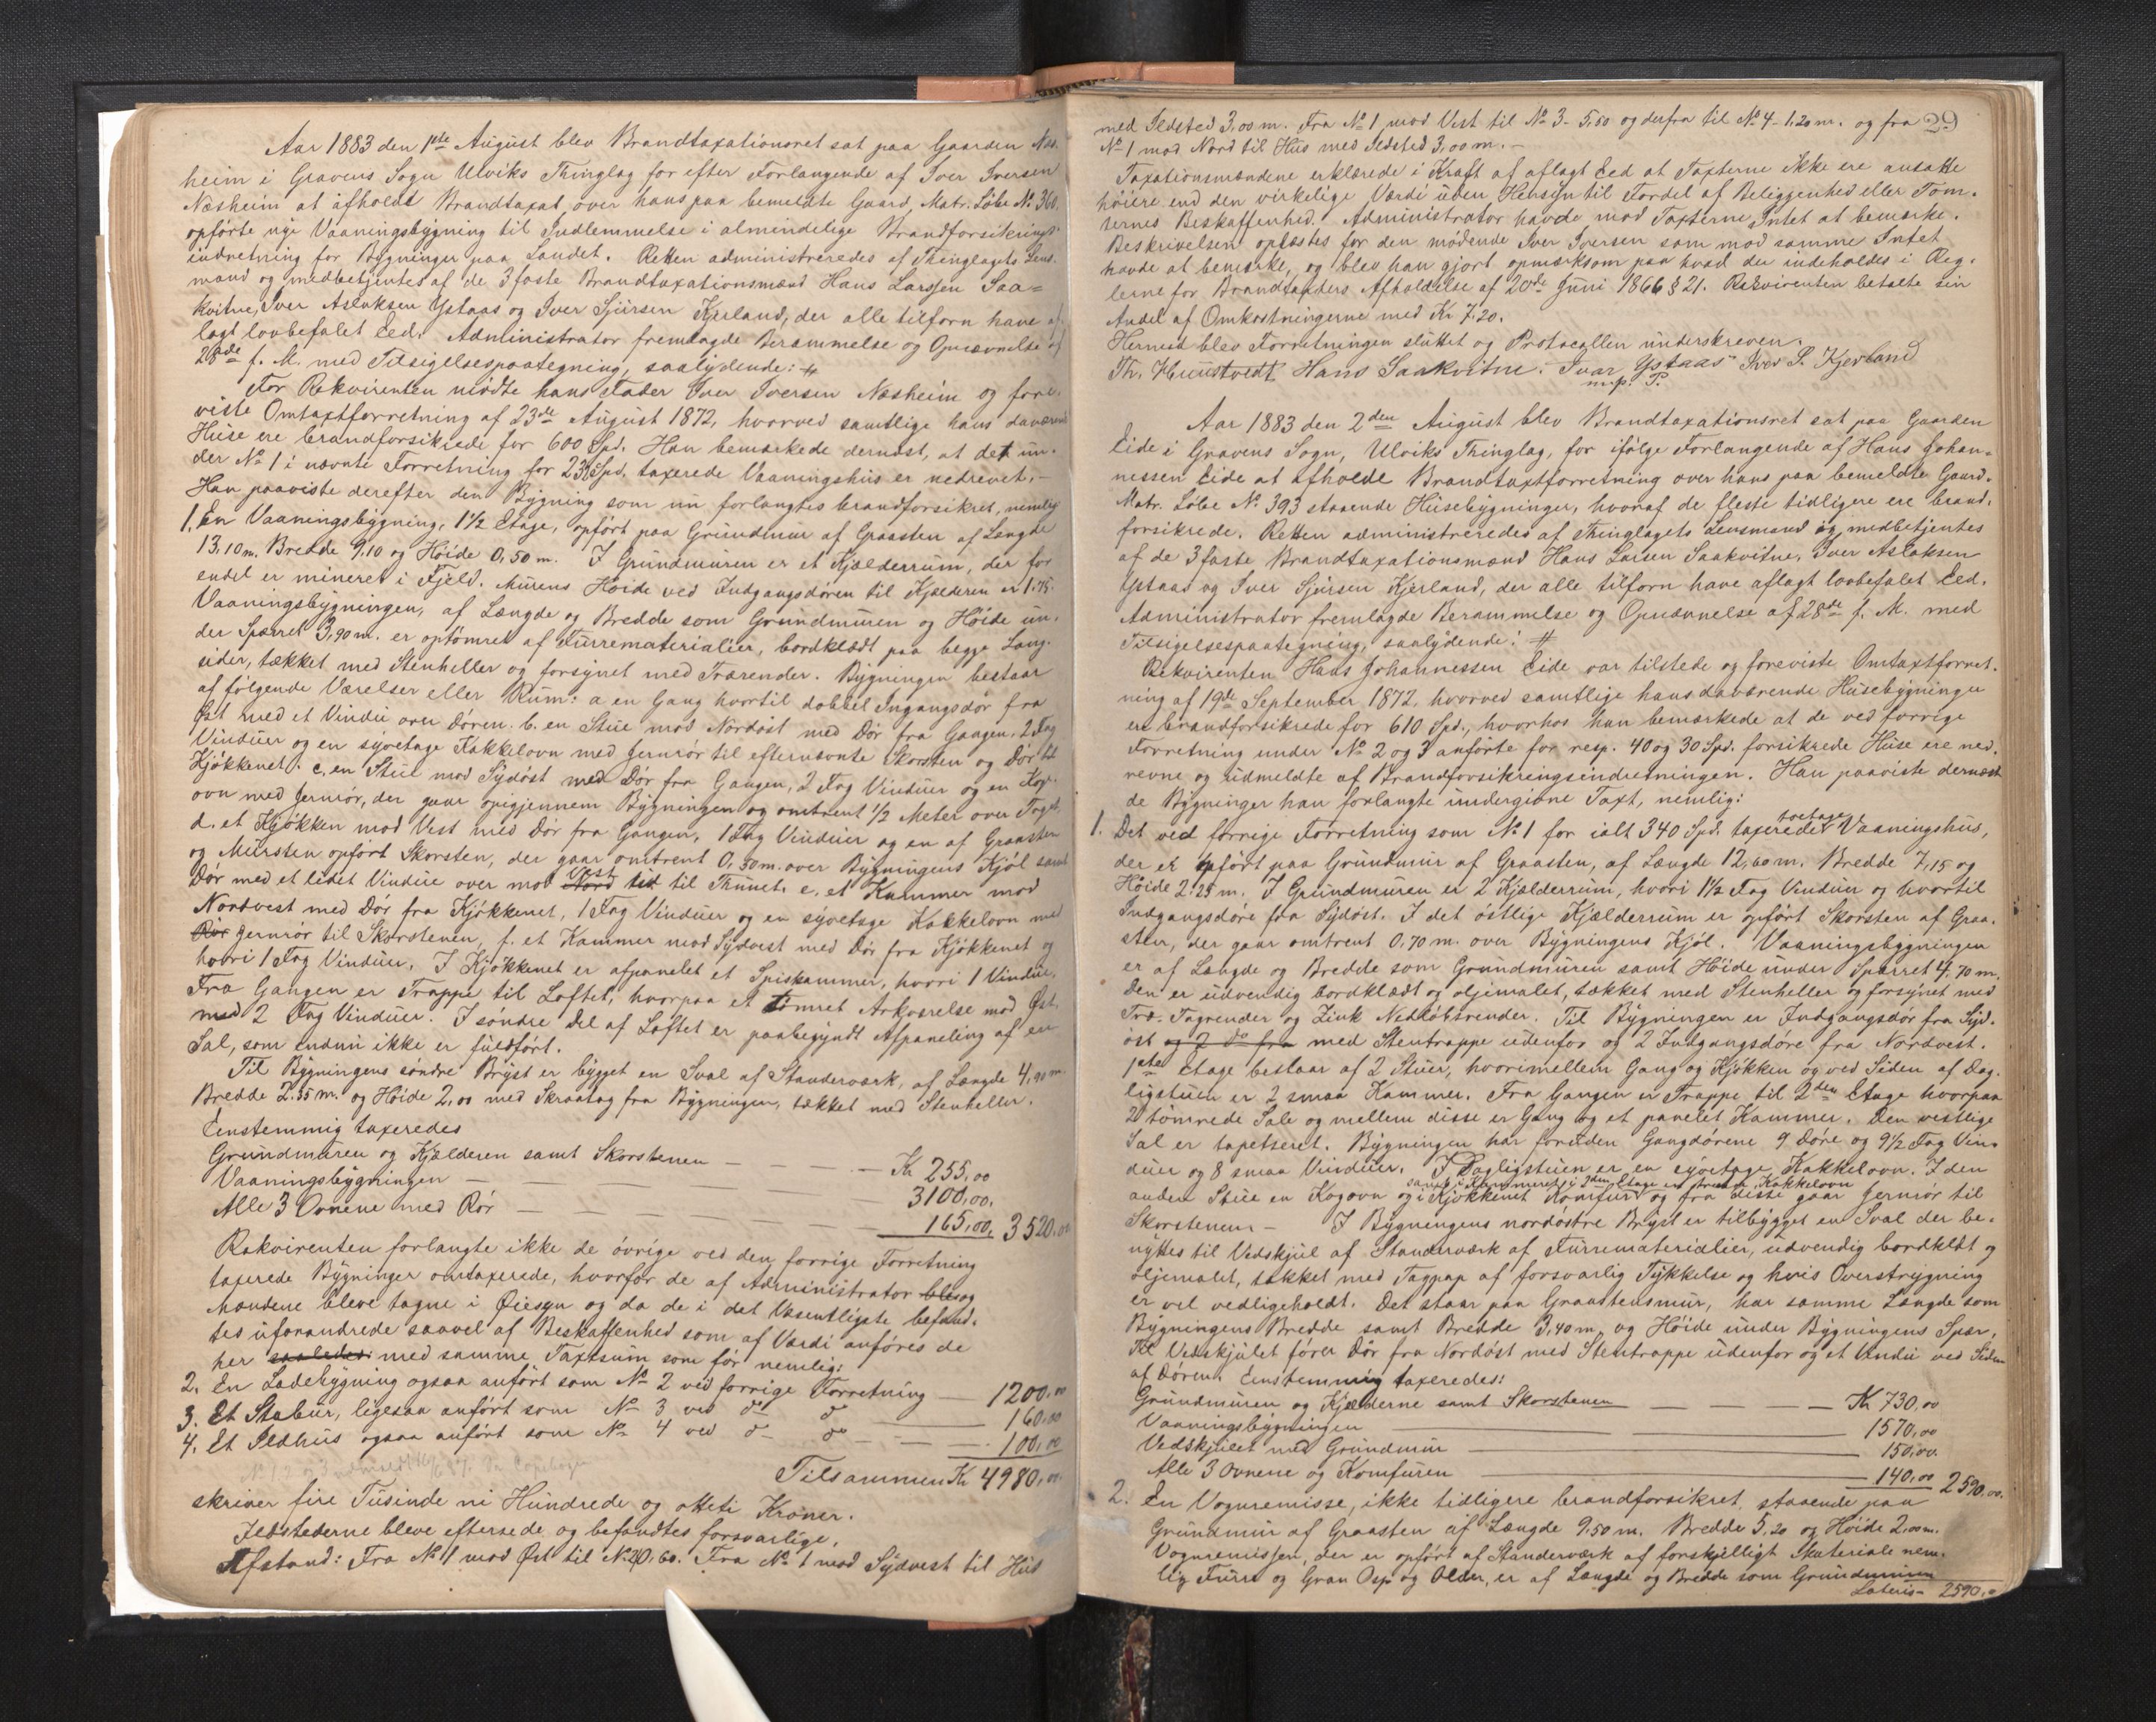 Aar 1883 den 1ste August blev Brandtaxationsret sat paa Gaarden Næs-
heim i Gravens Sogn Ulviks Thinglag for efter Forlangende af Iver Iversen
Næsheim at afholde Brandtaxat over hans paa bemeldte Gaard, Matr. Løbe No 360,
opførte nye Vaaningsbygning til Indlemmelse i almindelige Brandforsikrings-
indretning for Bygninger paa Landet. Retten administreredes af Thinglagets Lens-
mand og medbetjentes af de 3 faste Brandtaxationsmænd Hans Larssen Saa-
kvitne, Iver Aslaksen Ystaas og Iver Sjursen Kjerland, der alle tilforn have af-
lagt lovbefalet Eed. Administrator fremlagde Berammelse og Opnævnelse af
28de f. M. med Tilsigelsespaategning, saalydende: #
For Rekvirenten mødte hans Fader Iver Iversen Næsheim og fore-
viste Omtaxtforretning af 23de August 1872, hvorved samtlige hans daværende
Huse ere brandforsikrede for 600 Spd. Han bemærkede dernæst, at det un-
der No 1 i nævnte Forretning for 230 Spd. taxerede Vaaningshus er nedrevet. -
Han paaviste derefter den Bygning som nu forlangtes brandforsikret, nemlig
1. En Vaaningsbygning, 1½ Etage, opført paa Grundmur af Graasten af Længde
13,10 m. Bredde 9,10 og Høide 0,50 m. I Grundmuren er et Kjælderrum, der for
endel er mineret i Fjeld. Murens Høide ved Indgangsdøren til Kjælderen er 1,75.
Vaaningsbygningen, af Længde og Bredde som Grundmuren og Høide un-
der Sparret 3,90 m. er optømret af Furrematerialier, bordklædt paa begge Lang-
sider, tækket med Stenheller og forsynet med Trærender. Bygningen bestaar
af følgende Værelser eller Rum: a en Gang hvortil dobbel Ingangsdør fra
Øst med et Vindu over Døren. b. en Stue mod Nordøst med Dør fra Gangen, 2 Fag
Vinduer og en 2 etage Kakkelovn med Jernrør til efternævnte Skorsten og Dør til
Kjøkkenet. c, en Stue mod Sydøst med Dør fra Gangen, 2 Fag Vinduer og en Kog-
ovn med Jernrør, der gaar opigjennem Bygningen og omtrent 1/2 Meter over Taget.
d. et Kjøkken mod Vest med Dør fra Gangen, 1 Fag Vinduer og en af Graasten
og Mursten opført Skorsten, der gaar omtrent 0,50 m. over Bygningens Kjøl samt
Dør med et lidet Vindue over mod Nord Vest til Thunet. e, et Kammer mod
Nordvest med Dør fra Kjøkkenet, 1 Fag Vinduer og en 2 etage Kakkelovn med
Rør Jernrør til Skorstenen, f. et Kammer mod Sydvest med Dør fra Kjøkkenet og
hvori 1 Fag Vinduer. I Kjøkkenet er afpanelet et Spiskammer, hvori 1 Vindue.
Fra Gangen er Trappe til Loftet, hvorpaa et tømret Arkværelse mod Øst
med 2 Fag Vinduer. I søndre Del af Loftet er paabegyndt Afpaneling af en
Sal, som endnu ikke er fuldført.
Til Bygningens søndre Bryst er bygget en Sval af Standerværk, af Længde 4,90 m.
Bredde 2.35 m. og Høide 2,00 med Skraatag fra Bygningen, tækket med Stenheller.
Eenstemmig taxeredes
Grundmuren og Kjælderen samt Skorstenen - - - Kr 255,00
Vaaningsbygningen - - - 3100,00.
Alle 3 Ovnene med Rør - - - 165,00. 3520,00
Rekvirenten forlangte ikke de øvrige ved den forrige Forretning
taxerede Bygninger omtaxerede, hvorfor de af Administrator og
Mændene bleve tagne i Øiesyn og da de i det Væsentligste befand-
tes uforandrede saavel af Beskaffenhed som af Værdi anføres de
her saaledes med samme Taxtsum som før nemlig:
2. En Ladebygning ogsaa anført som No 2 ved forrige Forretning - 1200,00
3. Et Stabur, ligesaa anført som No 3 ved do do - 160,00
4. Et Ildhus ogsaa anført som No 4 ved do do - 100,00
Tilsammen Kr 4980,00.
skriver fire Tusinde ni Hundrede og otteti Kroner.
Ildstederne bleve efterseede og befandtes forsvarlige.
Afstand: Fra No 1 mod Øst til No 2 40,60. Fra No 1 mod Sydvest til Hus
29
med Ildsted 3,00 m. Fra No 1 mod Vest til No 3 - 5,50 og derfra til No 4 - 1,20 m. og fra
No 1 mod Nord til Hus med Ildsted 3,00 m. -
Taxationsmændene erklærede i Kraft af aflagt Eed at Taxterne ikke ere ansatte
høiere end den virkelige Værdi uden Hensyn til Fordel af Beliggenhed eller Tom-
ternes Beskaffenhed. Administrator havde mod Taxterne Intet at bemærke.
Beskrivelsen oplæstes for den mødende Iver Iversen som mod samme Intet
havde at bemærke, og blev han gjort opmærksom paa hvad der indeholdes i Reg-
lerne for Brandtaxters Afholdelse af 20de Juni 1866 § 21. Rekvirenten betalte sin
Andel af Omkostningerne med Kr 7,20.
Hermed blev Forretningen sluttet og Protocollen underskreven.
Th. Huustvedt Hans Saakvitne. Ivar Ystaas Iver S. Kjerland
m. p. P.
Aar 1883 den 2den August blev Brandtaxationsret sat paa Gaarden
Eide i Gravens Sogn, Ulviks Thinglag, for ifølge Forlangende af Hans Johan-
nessen Eide at afholde Brandtaxtforretning over hans paa bemeldte Gaard,
Matr. Løbe No 393 staaende Husebygninger, hvoraf de fleste tidligere ere brand-
forsikrede. Retten administreredes af Thinglagets Lensmand og medbetjentes
af de 3 faste Brandtaxationsmænd Hans Larsen Saakvitne, Iver Aslaksen
Ystaas og Iver Sjursen Kjerland, der alle tilforn have aflagt lovbefalet Eed.
Administrator fremlagde Berammelse og Opnævnelse af 28de f. M. med
Tilsigelsespaategning, saalydende: #
Rekvirenten Hans Johannessen Eide var tilstede og foreviste Omtaxtforret-
ning af 19de September 1872, hvorved samtlige hans daværende Husebygninger
er brandforsikrede for 610 Spd., hvorhos han bemærkede at de ved forrige
Forretning under No 2 og 3 anførte for resp. 40 og 30 Spd. forsikrede Huse ere ned-
revne og udmeldte af Brandforsikringsindretningen. Han paaviste dernæst
de Bygninger han forlangte undergivne Taxt, nemlig:
1. Det ved forrige Forretning som No 1 for ialt 340 Spd. taxerede toetages Vaaningshus,
der er opført paa Grundmur af Graasten, af Længde 12,60 m. Bredde 7,15 og
Høide 2,25 m. I Grundmuren er 2 Kjælderrum, hvori 1½ Fag Vinduer og hvortil
Indgangsdøre fra Sydøst. I det østlige Kjælderrum er opført Skorsten af Graa-
sten, der gaar omtrent 0,70 m. over Bygningens Kjøl. Vaaningsbygningen
er af Længde og Bredde som Grundmuren samt Høide under Sparret 4,70 m.
Den er udvendig bordklædt og oljemalet, tækket med Stenheller og forsynet med
Træ- Tagrender og Zink Nedløbsrender. Til Bygningen er Indgangsdør fra Syd-
øst og 2 do fra med Stentrappe udenfor og 2 Indgangsdøre fra Nordvest.
1ste Etage bestaar af 2 Stuer, hvorimellem Gang og Kjøkken og ved Siden af Dag-
ligstuen er 2 smaa Kammer. Fra Gangen er Trappe til 2den Etage hvorpaa
2 tømrede Sale og mellem disse er Gang og et panelet Kammer. Den vestlige
Sal er tapetseret. Bygningen har foruden Gangdørene 9 Døre og 9½ Fag Vin-
duer og 8 smaa Vinduer. I Dagligstuen er en 2 etage Kakkelovn. I den
samt i Kammeret i 2den Etage en Kakkelovn
anden Stue en Kogovn og i Kjøkkenet Komfur og fra disse gaar Jernrør til
Skorstenen - I Bygningens nordøstre Bryst er tilbygget en Sval der be-
nyttes til Vedskjul af Standerværk af Furrematerialier, udvendig bordklædt og
oljemalet, tækket med Tagpap af forsvarlig Tykkelse og hvis Overstrygning
er vel vedligeholdt. Det staar paa Graastensmur, har samme Længde som
Bygningens Bredde samt Bredde 3,40 m. og Høide under Bygningens Spær.
Til Vedskjulet fører Dør fra Nordøst med Stentrappe udenfor og et Vindu ved Siden
af Døren. Eenstemmig taxeredes:
Grundmuren og Kjælderne samt Skorstenen - - - Kr 730,00
Vaaningsbygningen - 1570,00
Vedskjulet med Grundmur - 150,00.
Alle 3 Ovnene og Komfuren - 140,00 2590,00.
2. En Vognremisse, ikke tidligere brandforsikret, staaende paa
Grundmur af Graasten af Længde 9,50 m. Bredde 5,20 og Høide 2,00 m.
Vognremissen, der er opført af Standerværk af forskjelligt Materiale nem-
lig Furre og Gran Osp og Older, er af Længde og Bredde som Grundmuren
Lateris - 2590,00